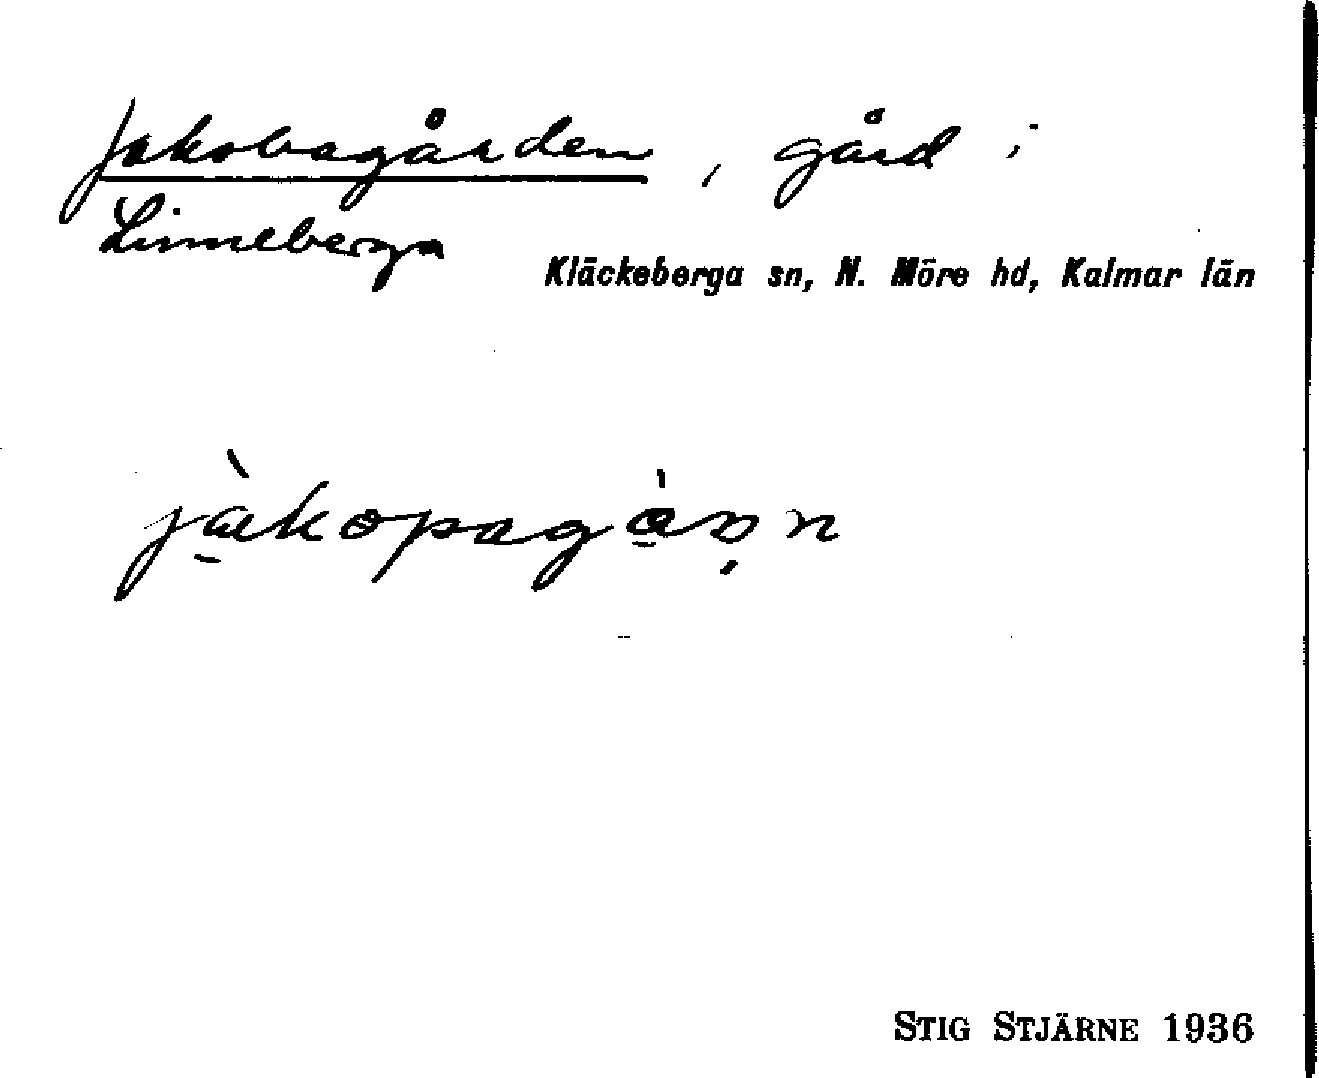 Jakobsgården, gård i
Linneberga
Kläckeberga sn, N. Möre hd, Kalmar län
STIG STJÄRNE 1936